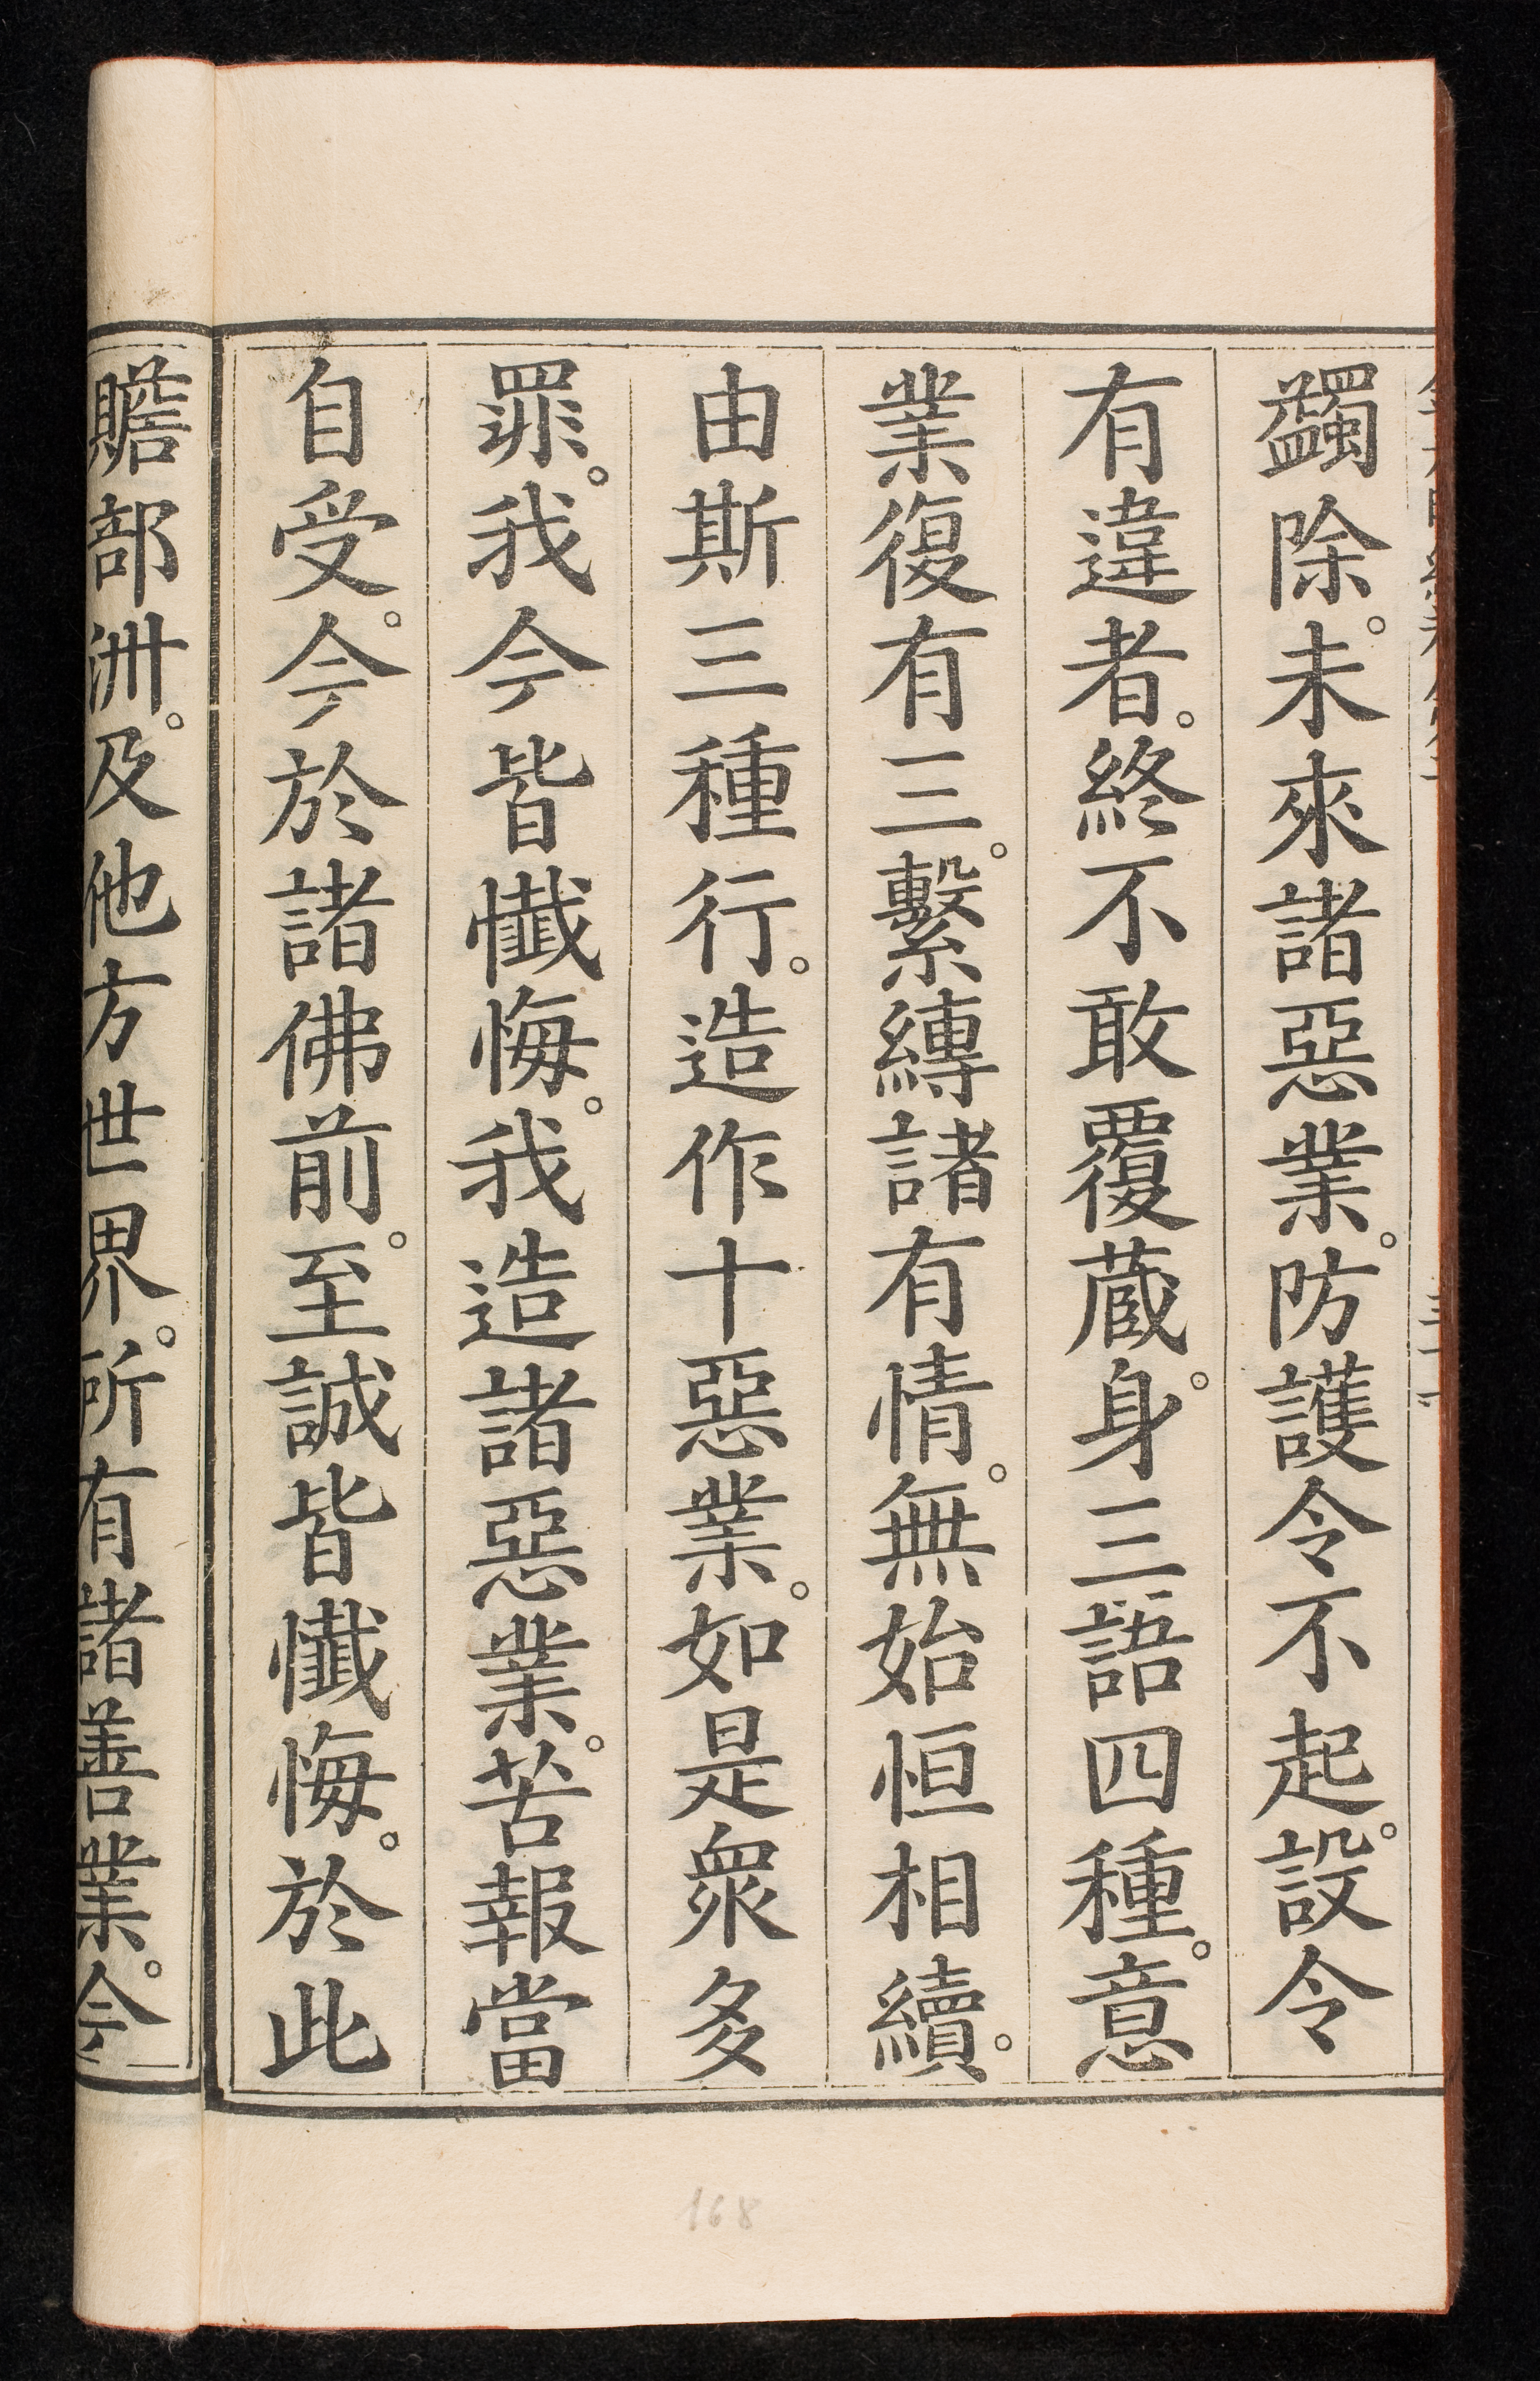 蠲除。未來諸惡業。防護令不起。設令
有違者。終不敢覆蔵。身三語四種。意
業復有三。繫縛諸有情。無始恒相續。
由斯三種行。造作十惡業。如是衆多
罪。我今皆懺悔。我造諸惡業。苦報當
自受。今於諸佛前。至誠皆懺悔。於此
贍部洲。及他方世界。所有諸善業。今
168